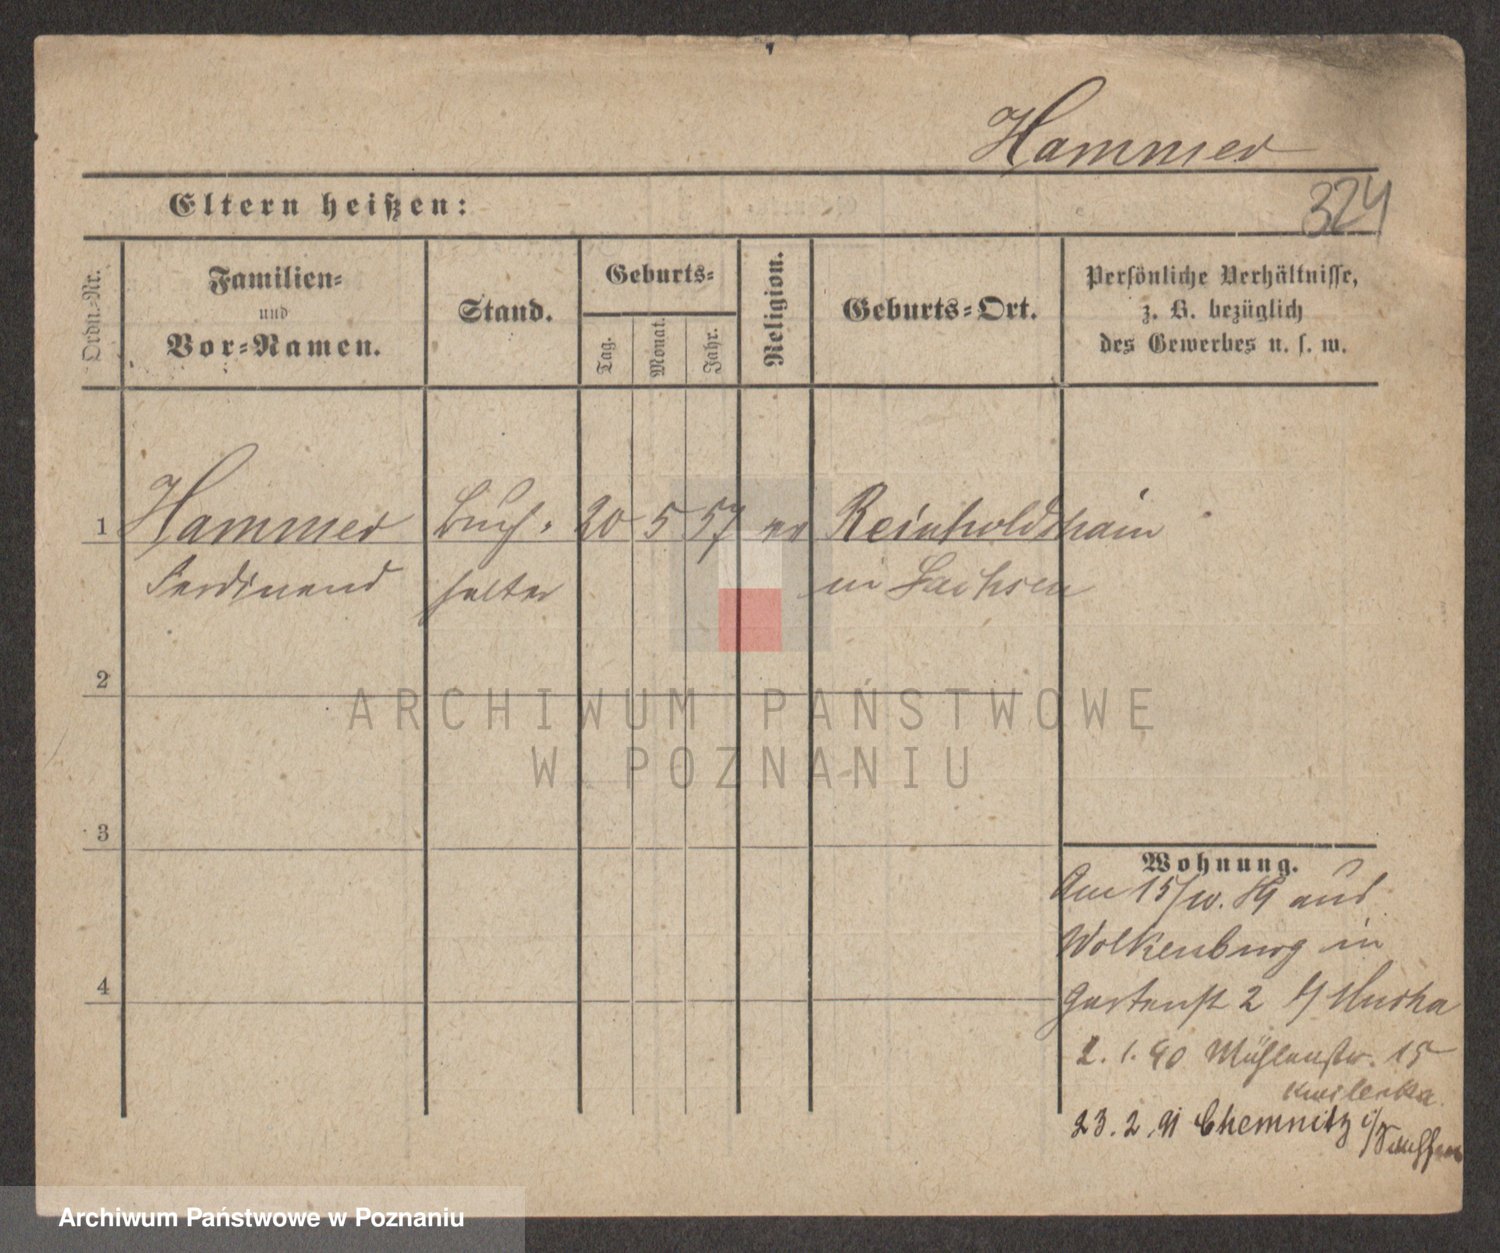 Hammer
324
Eltern heißen:
Ordn.-Nr.
Familien-
und
Vor-Namen.
Stand.
Geburts-
Tag.
Monat.
Jahr.
Religion.
Geburts-Ort.
Persönliche Verhältnisse,
z. B. bezüglich
des Gewerbes u. s. w.
1 Hammer Buch- 20 5 57 ev Reinholdshain
Ferdinand halter in Sachsen
2
ARCHIWUM PAŃSTWOWE
W POZNANIU
3
Wohnung.
Am 15/10. 89 aus
Wolkenburg in
4
Gartenstr 2 b/
2. 1. 90 Mühlenstr. 15
23. 2. 91 Chemnitz i/Sachsen
Archiwum Państwowe w Poznaniu